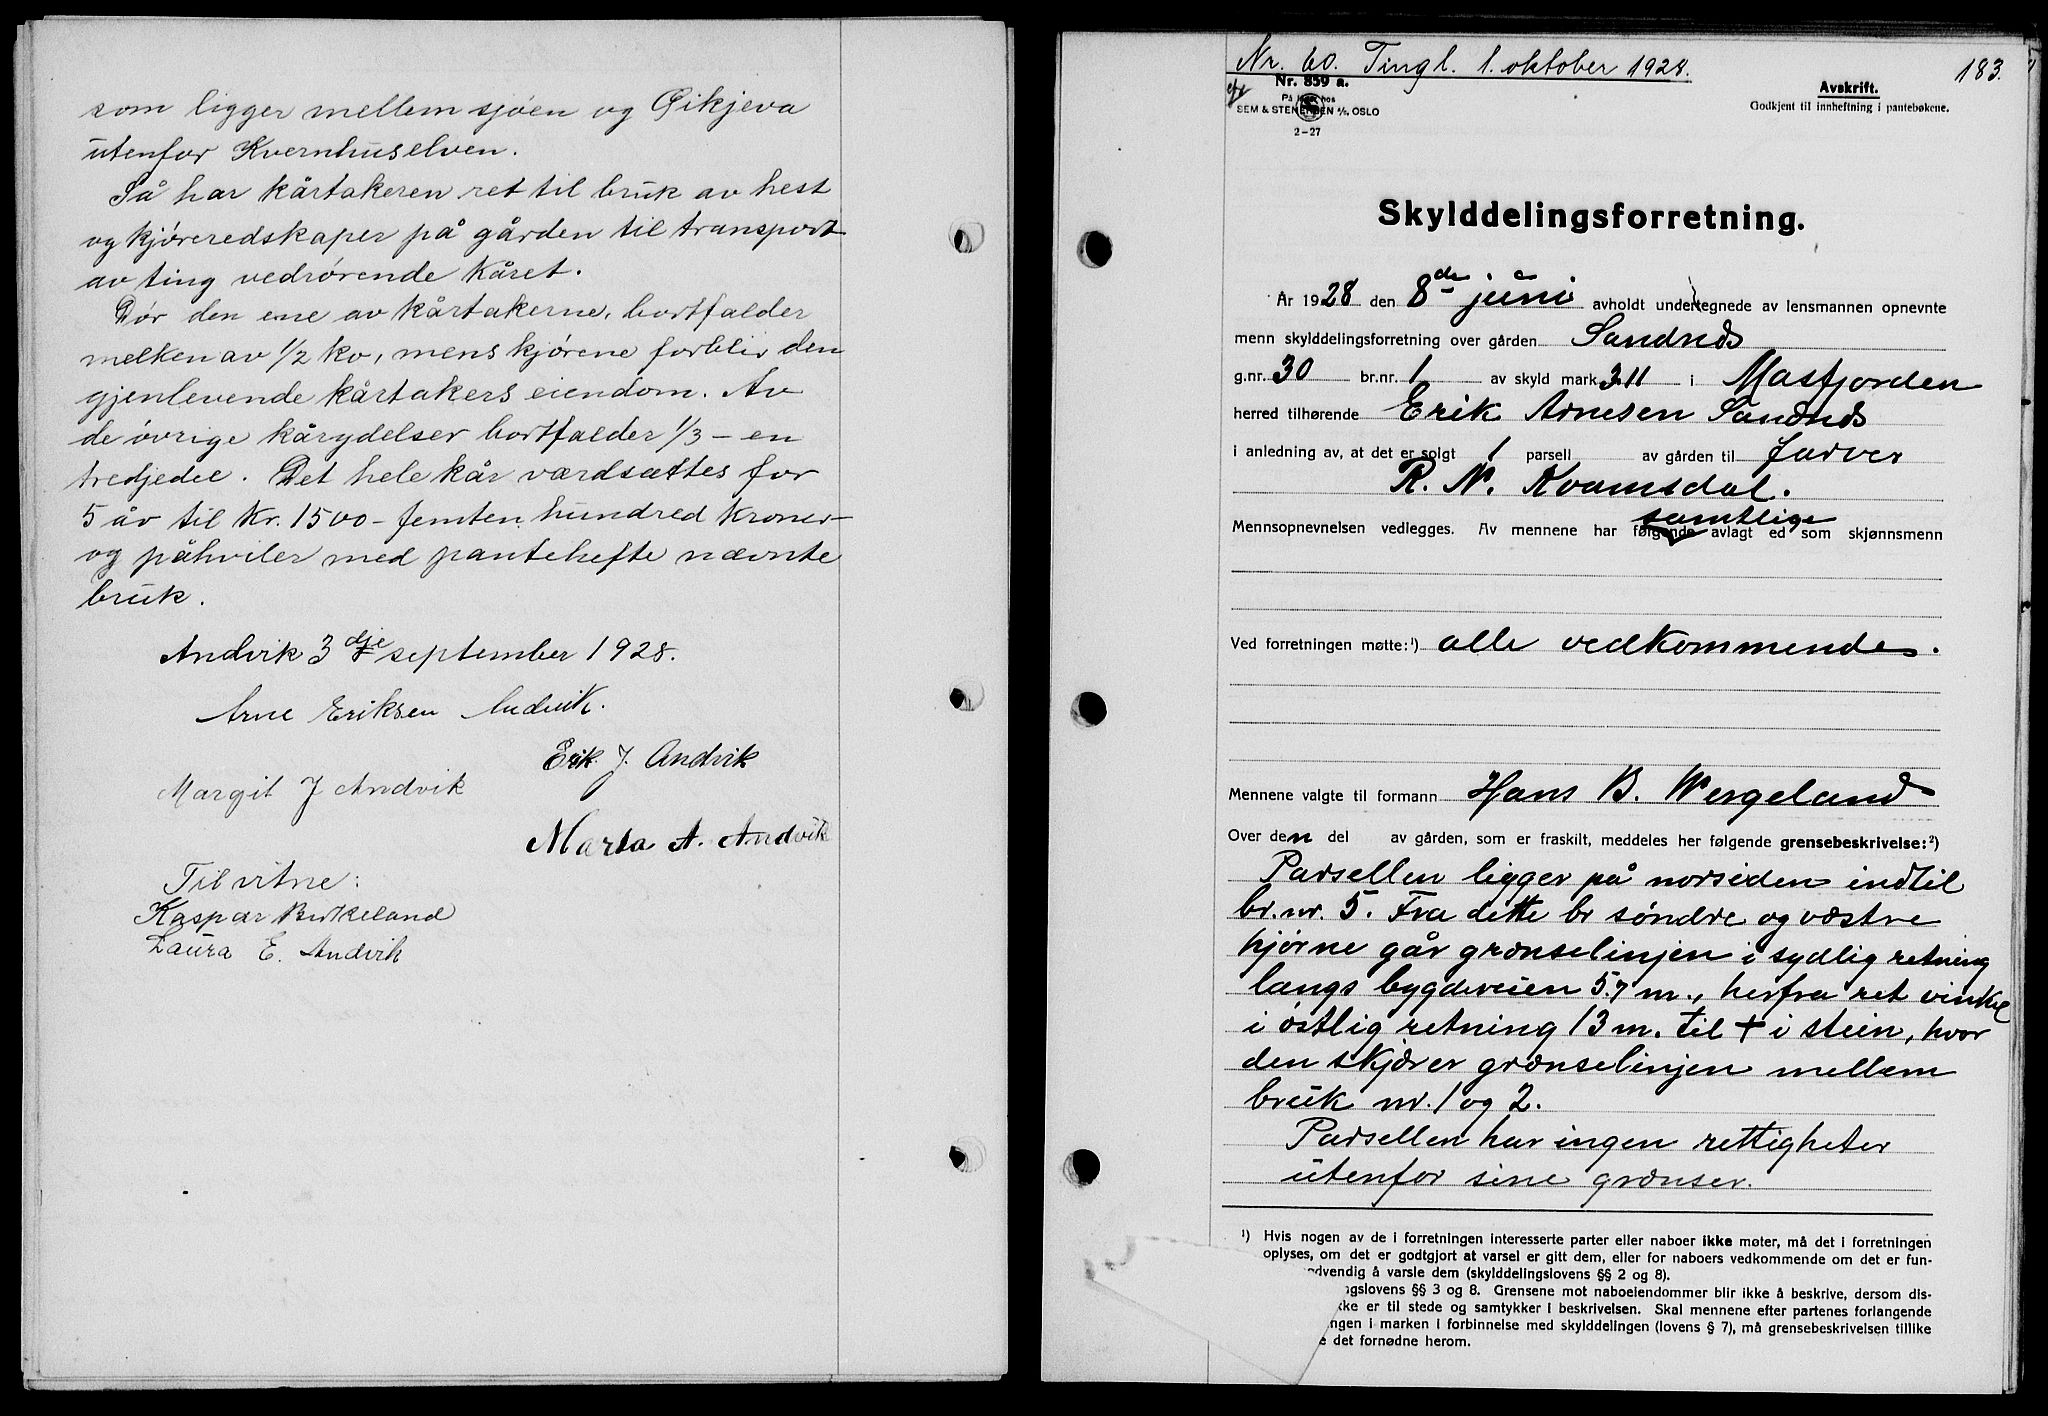 som ligger mellem sjøen og Øikjeva
utenfor Kvernhuselven.
Så har kårtakeren ret til bruk av hest
og kjøreredskaper på gården til transport
av ting vedrørende kåret.
Dør den ene av kårtakerne, bortfalder
melken av 1/2 ko, mens kjørene forblir den
gjenlevende kårtakers eiendom. Av
de øvrige kårydelser bortfalder 1/3 – en
tredjedel. Det hele kår værdsættes for
5 år til Kr. 1500 – femten hundred kroner –
og påhviler med pantehefte nævnte
bruk.
Andvik 3dje september 1928.
Arne Eriksen Andvik.
Erik J. Andvik
Margit J Andvik
Marta A. Andvik
Til vitne:
Kaspar Birkeland
Laura E. Andvik
Nr. 60. Tingl. 1. oktober 1928.
183.
Nr. 859 a.
På lager hos
SEM & STENERSEN A/S, OSLO
2–27
Avskrift.
Godkjent til innheftning i pantebøkene.
Skylddelingsforretning.
År 1928 den 8de juni avholdt undertegnede av lensmannen opnevnte
menn skylddelingsforretning over gården Sandnes
g.nr. 30 br.nr. 1 av skyld mark 3.11 i Masfjorden
herred tilhørende Erik Arnesen Sandnes
i anledning av, at det er solgt 1 parsell av gården til farver
R. N. Kvamsdal.
samtlige
Mennsopnevnelsen vedlegges. Av mennene har følgende avlagt ed som skjønnsmenn
Ved forretningen møtte:¹) alle vedkommende.
Mennene valgte til formann Hans B. Wergeland
Over den del av gården, som er fraskilt, meddeles her følgende grensebeskrivelse:²)
Parsellen ligger på norsiden indtil
br. nr. 5. Fra dette br søndre og væstre
hjørne går grænselinjen i sydlig retning
langs bygdeveien 5.7 m., herfra ret vinkel
i østlig retning 13 m. til + i stein, hvor
den skjærer grænselinjen mellem
bruk nr. 1 og 2.
Parsellen har ingen rettigheter
utenfor sine grænser.
¹) Hvis nogen av de i forretningen interesserte parter eller naboer ikke møter, må det i forretningen
oplyses, om det er godtgjort at varsel er gitt dem, eller for naboers vedkommende om det er fun-
dvendig å varsle dem (skylddelingslovens §§ 2 og 8).
ngslovens §§ 3 og 8. Grensene mot naboeiendommer blir ikke å beskrive, dersom dis-
ke er til stede og samtykker i beskrivelsen. Skal mennene efter partenes forlangende
ngen i marken i forbinnelse med skylddelingen (lovens § 7), må grensebeskrivelsen tillike
e det fornødne herom.